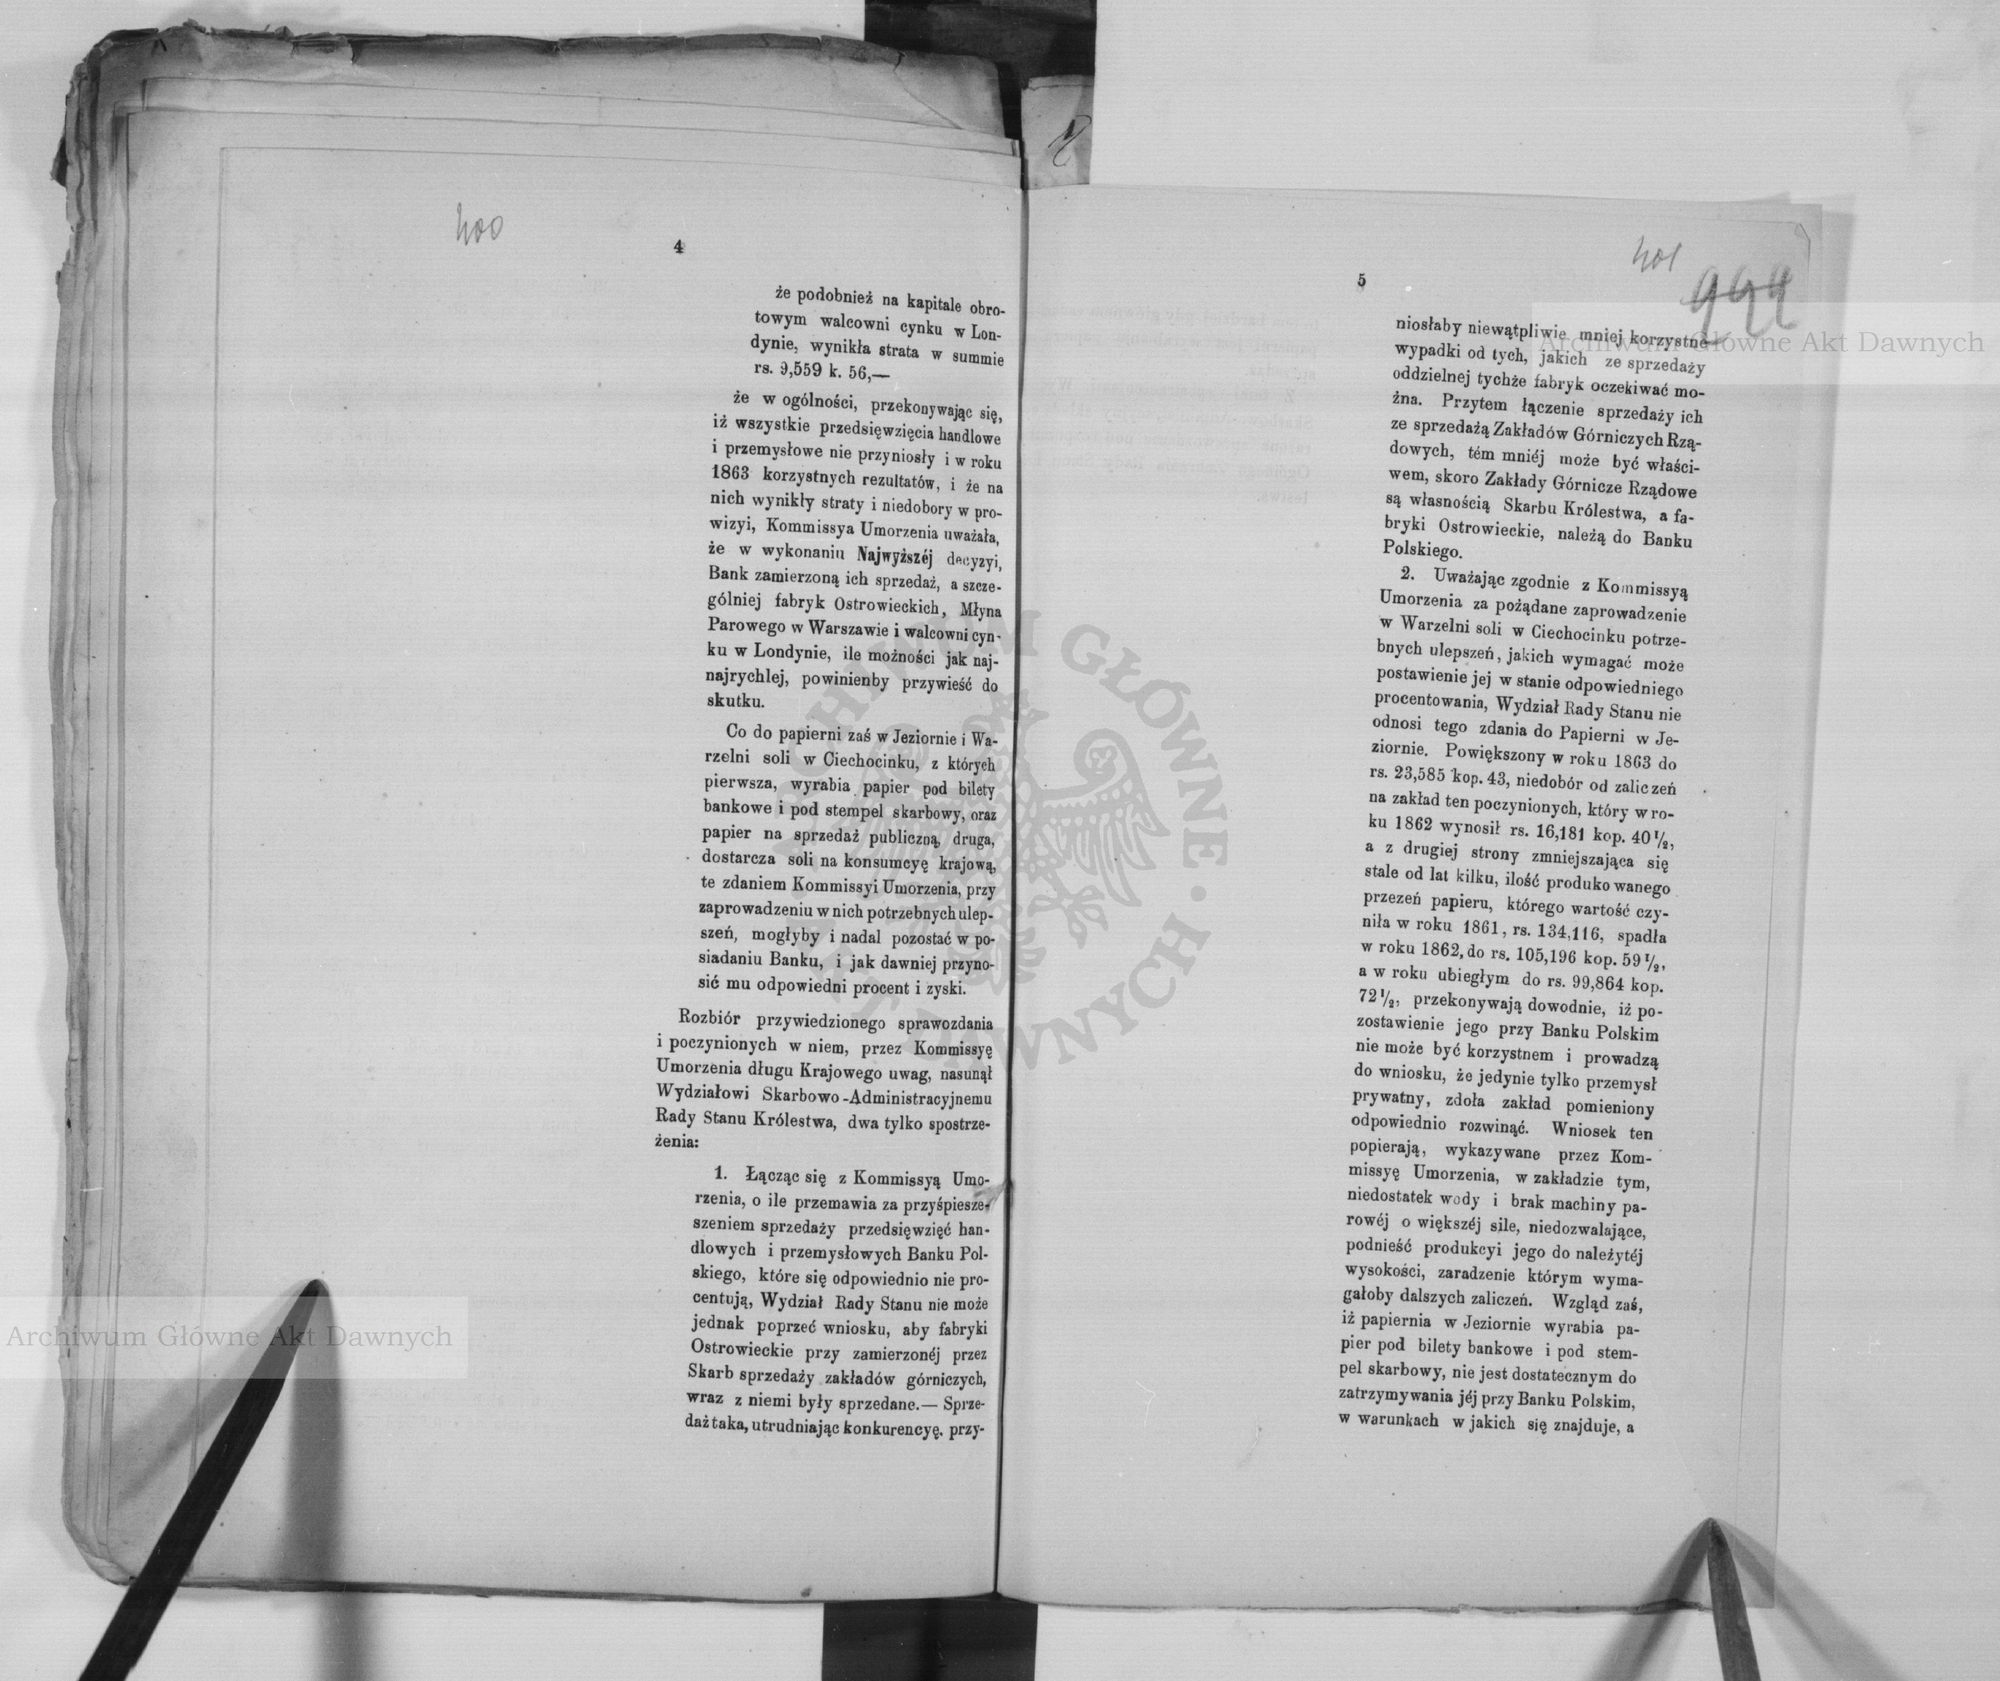 400
4
że podobnież na kapitale obro-
towym walcowni cynku w Lon-
dynie, wynikła strata w summie
rs. 9,559 k. 56,—
że w ogólności, przekonywając się,
iż wszystkie przedsięwzięcia handlowe
i przemysłowe nie przyniosły i w roku
1863 korzystnych rezultatów, i że na
nich wynikły straty i niedobory w pro-
wizyi, Kommissya Umorzenia uważała,
że w wykonaniu Najwyższéj decyzyi,
Bank zamierzoną ich sprzedaż, a szcze-
gólniej fabryk Ostrowieckich, Młyna
Parowego w Warszawie i walcowni cyn-
ku w Londynie, ile możności jak naj-
najrychlej, powinienby przywieść do
skutku.
Co do papierni zaś w Jeziornie i Wa-
rzelni soli w Ciechocinku, z których
pierwsza, wyrabia papier pod bilety
bankowe i pod stempel skarbowy, oraz
papier na sprzedaż publiczną, druga,
dostarcza soli na konsumcyę krajową,
te zdaniem Kommissyi Umorzenia, przy
zaprowadzeniu w nich potrzebnych ulep-
szeń, mogłyby i nadal pozostać w po-
siadaniu Banku, i jak dawniej przyno-
sić mu odpowiedni procent i zyski.
Rozbiór przywiedzionego sprawozdania
i poczynionych w niem, przez Kommissyę
Umorzenia długu Krajowego uwag, nasunął
Wydziałowi Skarbowo-Administracyjnemu
Rady Stanu Królestwa, dwa tylko spostrze-
żenia:
1. Łącząc się z Kommissyą Umo-
rzenia, o ile przemawia za przyśpiesze-
szeniem sprzedaży przedsięwzięć han-
dlowych i przemysłowych Banku Pol-
skiego, które się odpowiednio nie pro-
centują, Wydział Rady Stanu nie może
jednak poprzeć wniosku, aby fabryki
Ostrowieckie przy zamierzonéj przez
Skarb sprzedaży zakładów górniczych,
wraz z niemi były sprzedane.— Sprze-
daż taka, utrudniając konkurencyę. przy-
401
5
niosłaby niewątpliwie mniej korzystne
wypadki od tych, jakich ze sprzedaży
oddzielnej tychże fabryk oczekiwać mo-
żna. Przytem łączenie sprzedaży ich
ze sprzedażą Zakładów Górniczych Rzą-
dowych, tém mniéj może być właści-
wem, skoro Zakłady Górnicze Rządowe
są własnością Skarbu Królestwa, a fa-
bryki Ostrowieckie, należą do Banku
Polskiego.
2. Uważając zgodnie z Kommissyą
Umorzenia za pożądane zaprowadzenie
w Warzelni soli w Ciechocinku potrze-
bnych ulepszeń, jakich wymagać może
postawienie jej w stanie odpowiedniego
procentowania, Wydział Rady Stanu nie
odnosi tego zdania do Papierni w Je-
ziornie. Powiększony w roku 1863 do
rs. 23,585 kop. 43, niedobór od zaliczeń
na zakład ten poczynionych, który w ro-
ku 1862 wynosił rs. 16,181 kop. 40 1/2,
a z drugiej strony zmniejszająca się
stale od lat kilku, ilość produkowanego
przezeń papieru, którego wartość czy-
niła w roku 1861, rs. 134,116, spadła
w roku 1862, do rs. 105,196 kop. 59 1/2,
a w roku ubiegłym do rs. 99,864 kop.
72 1/2, przekonywają dowodnie, iż po-
zostawienie jego przy Banku Polskim
nie może być korzystnem i prowadzą
do wniosku, że jedynie tylko przemysł
prywatny, zdoła zakład pomieniony
odpowiednio rozwinąć. Wniosek ten
popierają, wykazywane przez Kom-
missyę Umorzenia, w zakładzie tym,
niedostatek wody i brak machiny pa-
rowéj o większéj sile, niedozwalające,
podnieść produkcyi jego do należytéj
wysokości, zaradzenie którym wyma-
gałoby dalszych zaliczeń. Wzgląd zaś,
iż papiernia w Jeziornie wyrabia pa-
pier pod bilety bankowe i pod stem-
pel skarbowy, nie jest dostatecznym do
zatrzymywania jéj przy Banku Polskim,
w warunkach w jakich się znajduje, a
Archiwum Główne Akt Dawnych
Archiwum Główne Akt Dawnych
ARCHIWUM GŁÓWNE · AKT DAWNYCH ·